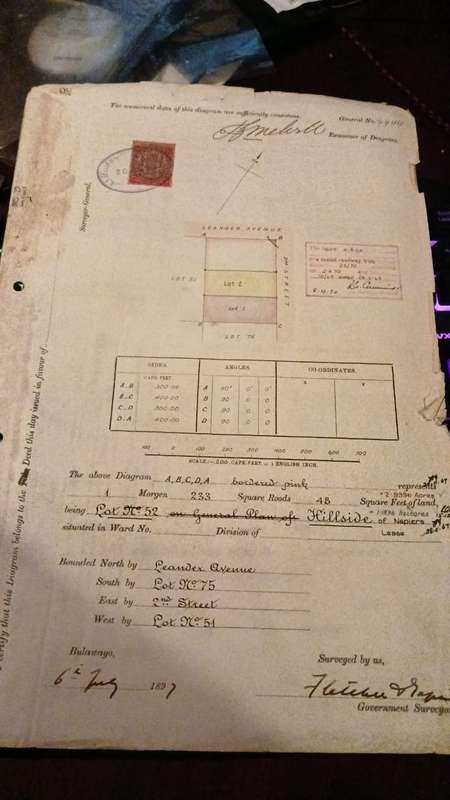 The numerical data of this diagram are sufficiently consistent.
General No.
Examiner of Diagrams.
Surveyor-General.
LEANDER AVENUE
A B
LOT 51
Lot 2
Lot 1
2ND STREET
D C
LOT 75
SIDES. ANGLES CO-ORDINATES.
CAPE FEET X Y
A.B 300·00 A 90° 0' 0"
B.C 400·00 B 90 0 0
C.D 300·00 C 90 0 0
D.A 400·00 D 90 0 0
100 0 100 200 300 400 500 600 700
SCALE:—200 CAPE FEET = 1 ENGLISH INCH.
The above Diagram A,B,C,D,A bordered pink represents
1 Morgen 233 Square Roods 48 Square Feet of land,
being Lot No. 52 on General Plan of Hillside of Napiers Lease
situated in Ward No. Division of
Bounded North by Leander Avenue
South by Lot No. 75
East by 2nd Street
West by Lot No. 51
Bulawayo,
6th July 1897
Surveyed by us,
Fletcher &
Government Surveyo
certify that this Diagram belongs to the Deed this day issued in favor of